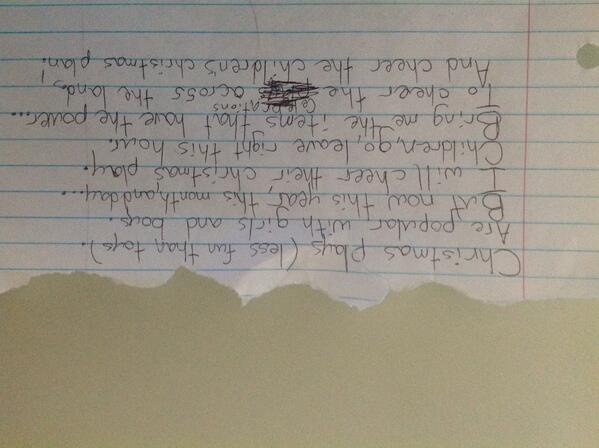 Christmas plays (less fun than toys).
Are popular with girls and boys.
But now this year, this month, and day...
I will cheer their christmas play.
Children, go, leave right this hour.
Bring me the items that have the power...
To cheer the celebrations across the land,
And cheer the children's christmas plan!